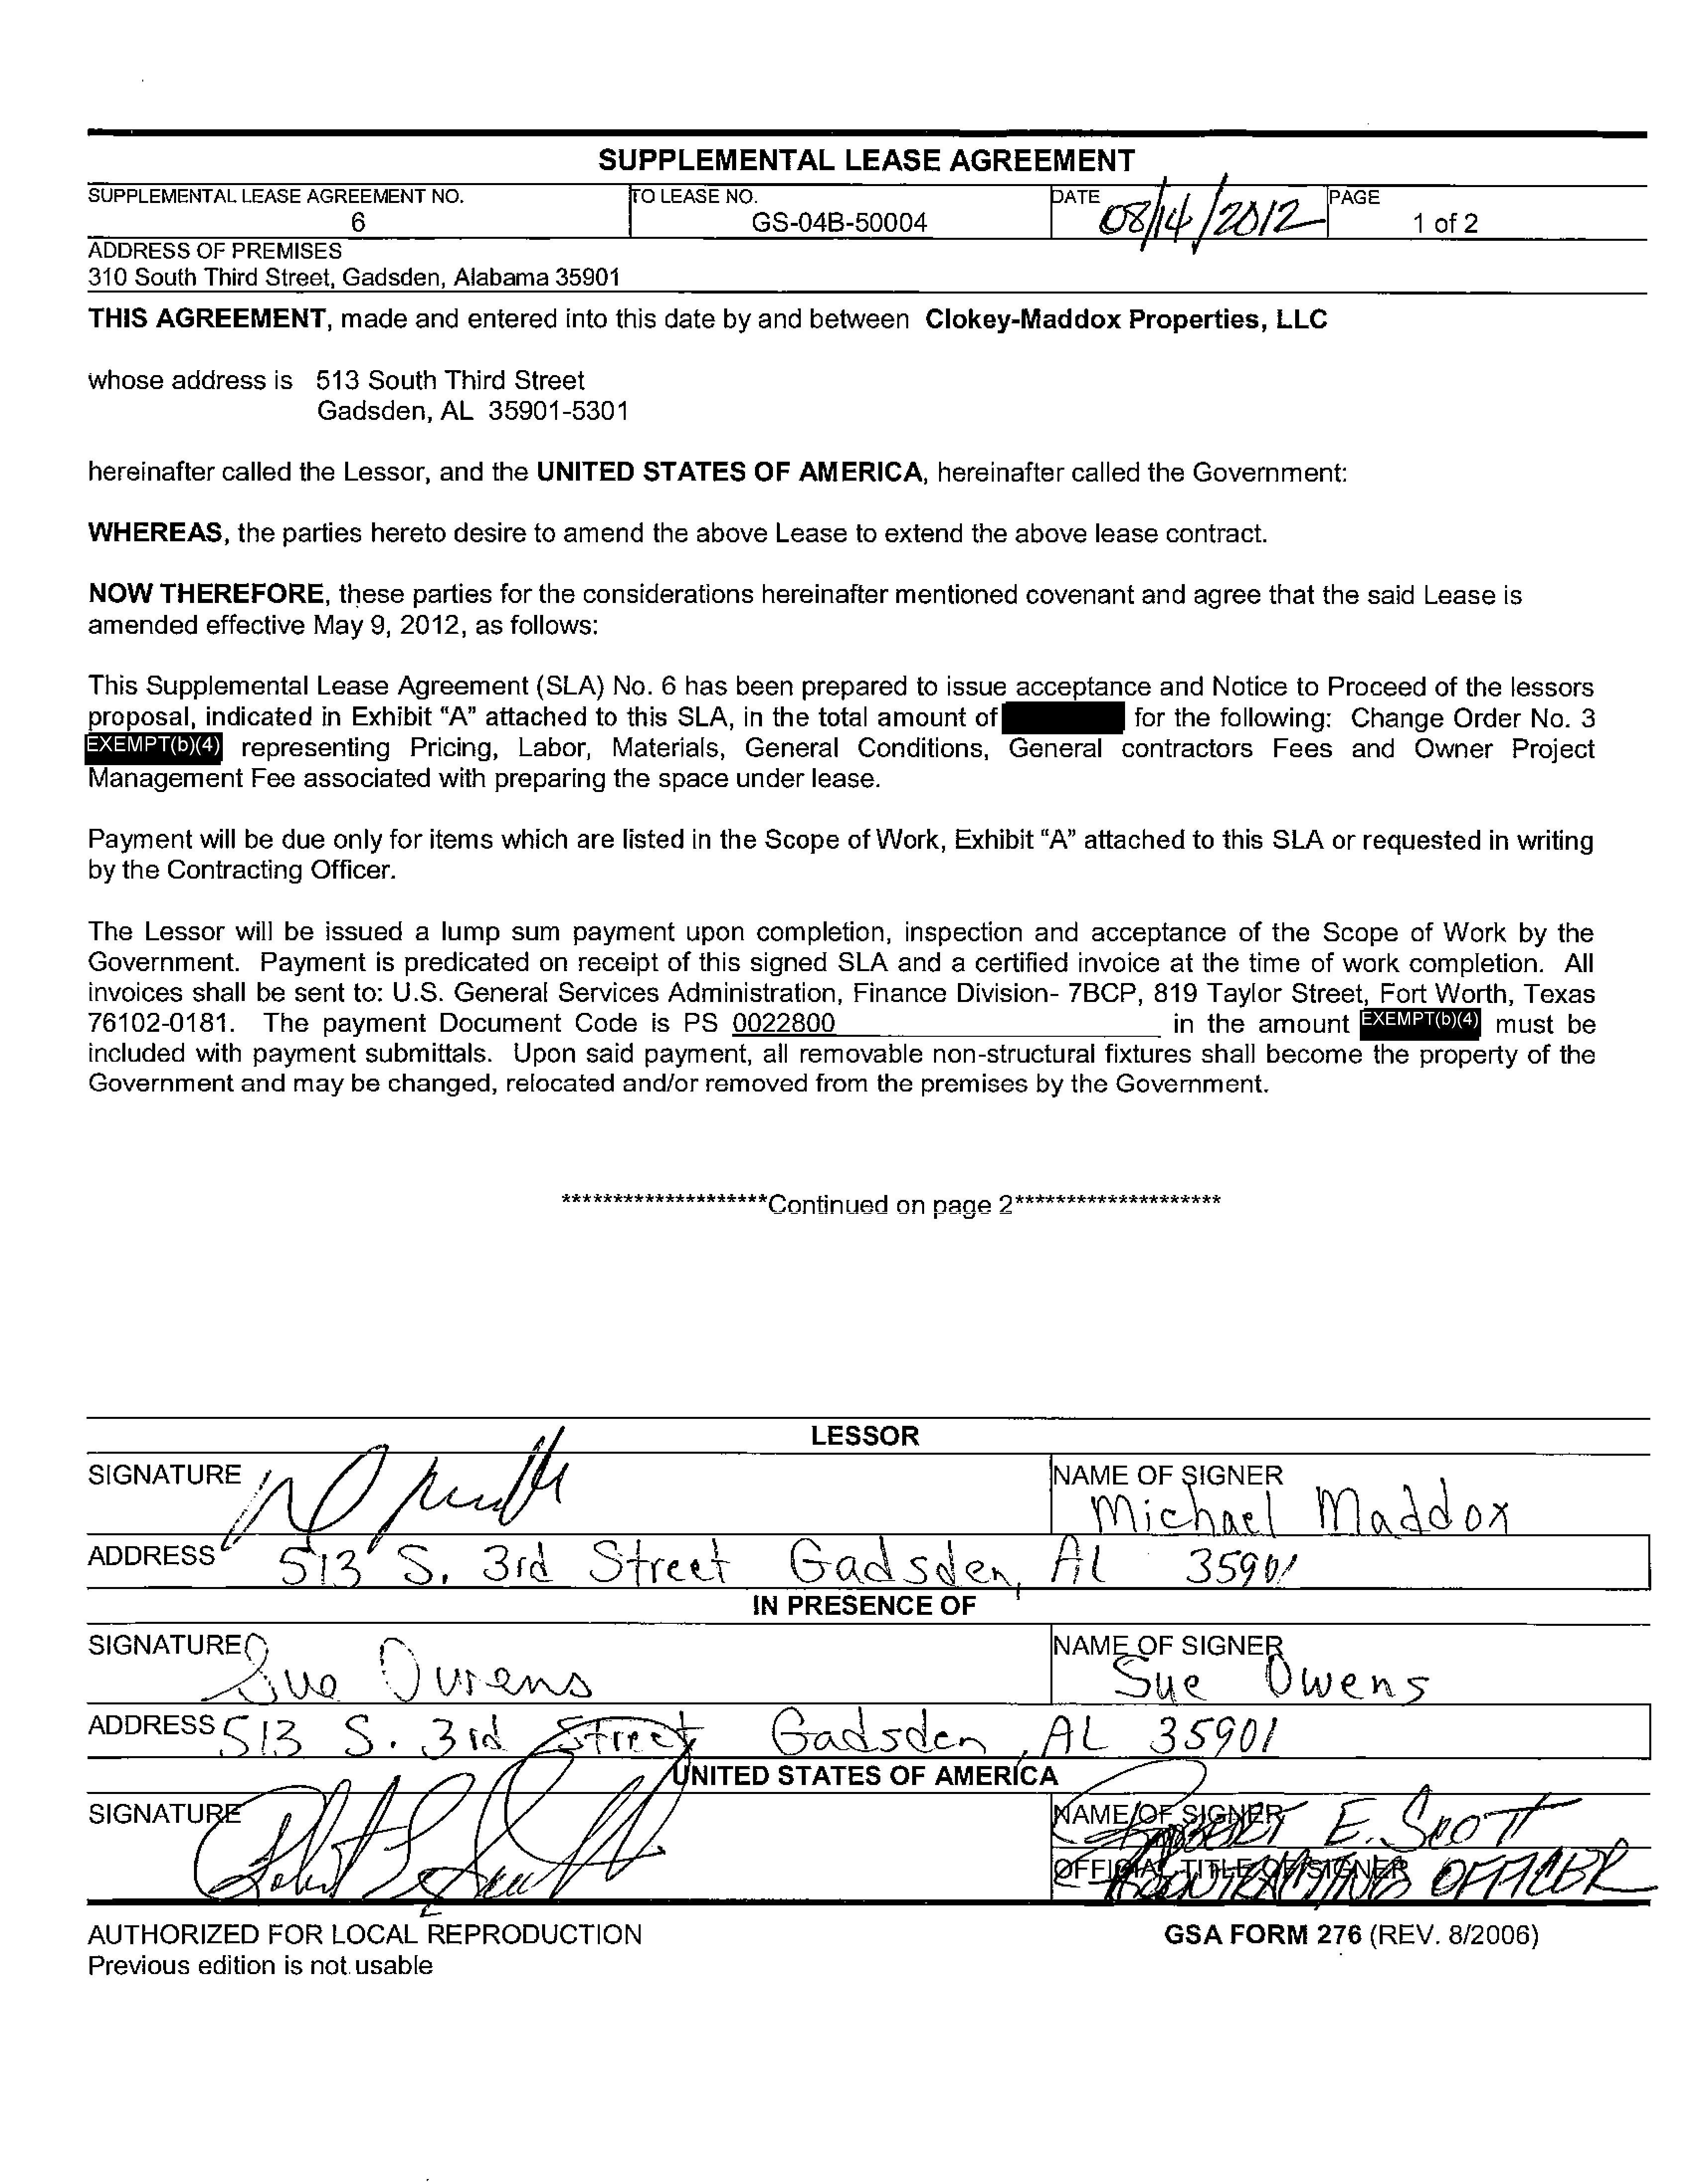 SUPPLEMENTAL LEASE AGREEMENT
SUPPLEMENTAL LEASE AGREEMENT NO.
6
TO LEASE NO.
GS-04B-50004
DATE
08/14/2012
PAGE
1 of 2
ADDRESS OF PREMISES
310 South Third Street, Gadsden, Alabama 35901
THIS AGREEMENT, made and entered into this date by and between Clokey-Maddox Properties, LLC
whose address is 513 South Third Street
Gadsden, AL 35901-5301
hereinafter called the Lessor, and the UNITED STATES OF AMERICA, hereinafter called the Government:
WHEREAS, the parties hereto desire to amend the above Lease to extend the above lease contract.
NOW THEREFORE, these parties for the considerations hereinafter mentioned covenant and agree that the said Lease is
amended effective May 9, 2012, as follows:
This Supplemental Lease Agreement (SLA) No. 6 has been prepared to issue acceptance and Notice to Proceed of the lessors
proposal, indicated in Exhibit “A” attached to this SLA, in the total amount of for the following: Change Order No. 3
EXEMPT(b)(4) representing Pricing, Labor, Materials, General Conditions, General contractors Fees and Owner Project
Management Fee associated with preparing the space under lease.
Payment will be due only for items which are listed in the Scope of Work, Exhibit “A” attached to this SLA or requested in writing
by the Contracting Officer.
The Lessor will be issued a lump sum payment upon completion, inspection and acceptance of the Scope of Work by the
Government. Payment is predicated on receipt of this signed SLA and a certified invoice at the time of work completion. All
invoices shall be sent to: U.S. General Services Administration, Finance Division- 7BCP, 819 Taylor Street, Fort Worth, Texas
76102-0181. The payment Document Code is PS 0022800 in the amount EXEMPT(b)(4) must be
included with payment submittals. Upon said payment, all removable non-structural fixtures shall become the property of the
Government and may be changed, relocated and/or removed from the premises by the Government.
********************Continued on page 2********************
LESSOR
SIGNATURE
NAME OF SIGNER
Michael Maddox
ADDRESS 513 S. 3rd Street Gadsden, AL 35901
IN PRESENCE OF
SIGNATURE Sue Owens
NAME OF SIGNER
Sue Owens
ADDRESS 513 S. 3rd Street Gadsden, AL 35901
UNITED STATES OF AMERICA
SIGNATURE
NAME OF SIGNER
E. Scott
OFFICIAL TITLE OF SIGNER
CONTRACTING OFFICER
AUTHORIZED FOR LOCAL REPRODUCTION
Previous edition is not usable
GSA FORM 276 (REV. 8/2006)